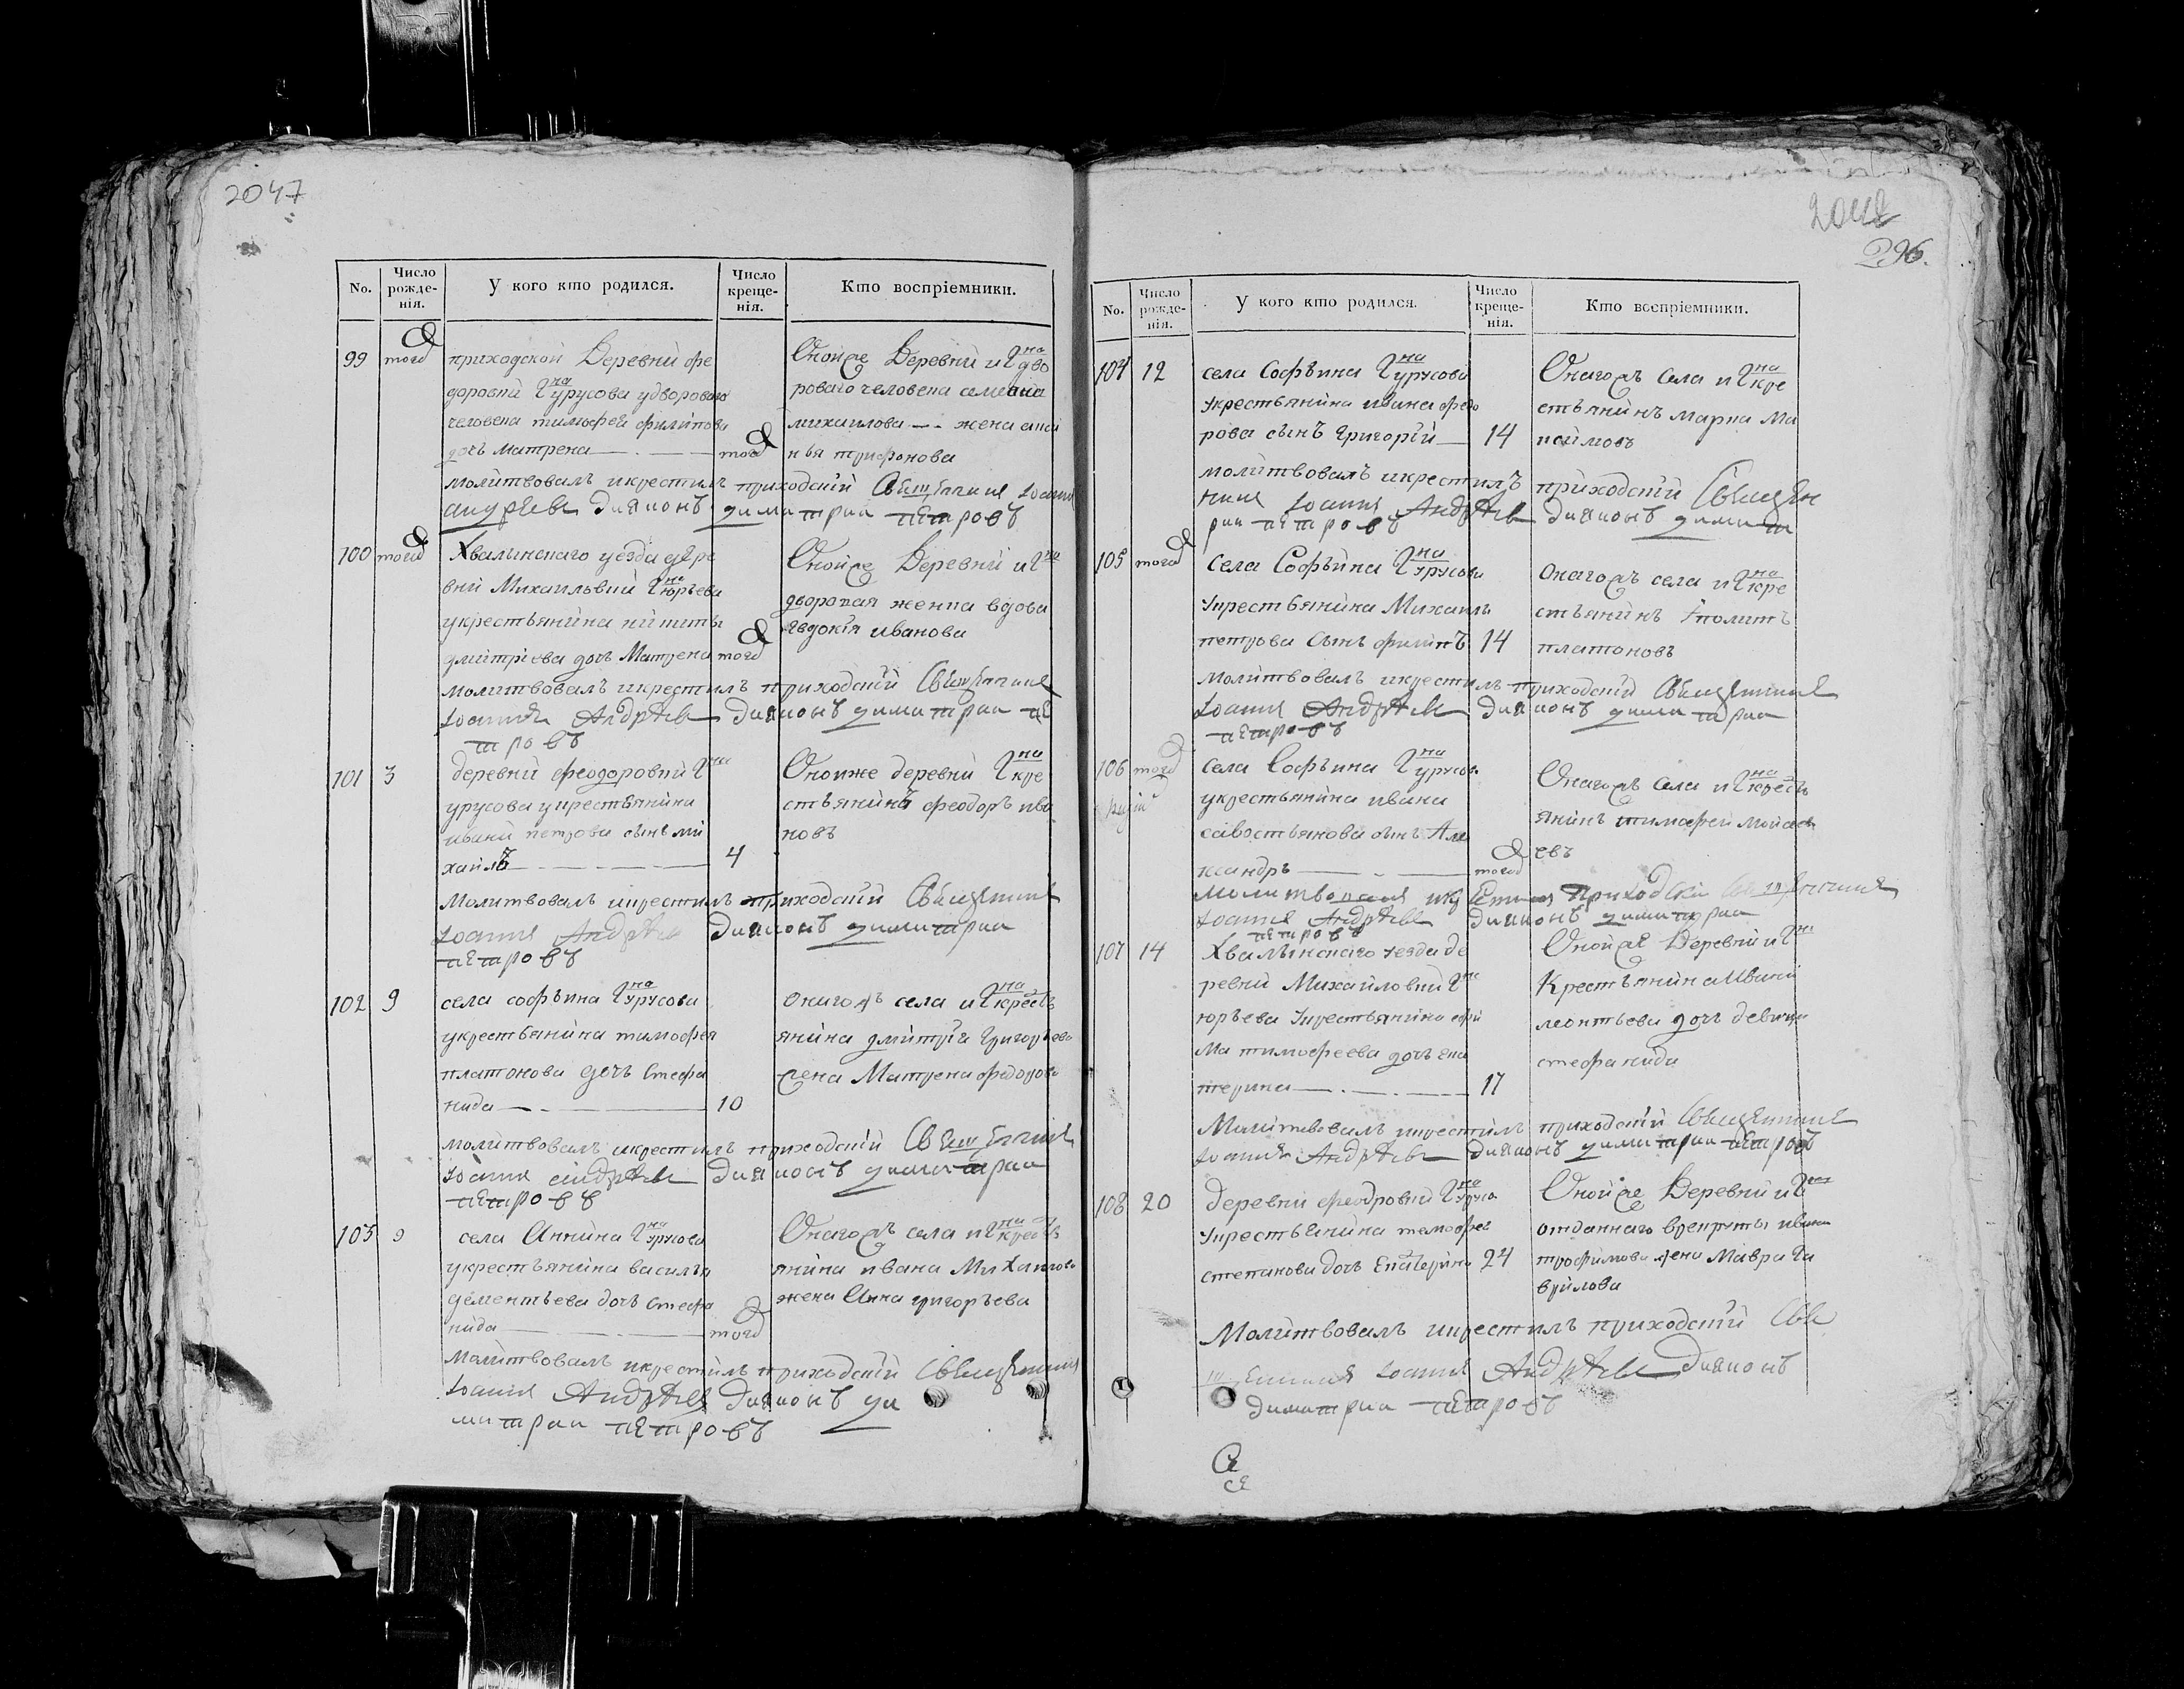 2047
No.
Число рожденія.
У кого кто родился.
Число крещенія.
Кто воспріемники.
99 тогож
приходской Деревни Фе
доровки Г на Урусова у дворового
человека тимофея филипова
дочь матрена — тогож
Онойже Деревни и Г на дво
роваго человека семиона
михаилова — жена
трифонова
молитвовалъ и крестилъ приходский Священникъ Іоаннъ
андреевъ диаконъ димитрии петровъ
100 тогож
Хвалынскаго уезда дере
вни Михаиловки Г на Юрьева
у крестьянина никиты
дмитриева дочь Матрена тогож
Онойже Деревни и Г на
дворовая женка вдова
Авдокія иванова
молитвовалъ и крестилъ приходский Священникъ
Іоаннъ Андреевъ Диаконъ димитрии пе
тровъ
101 3
деревни феодоровки Г на
урусова у крестьянина
ивана петрова сынъ ми
хаилъ — 4
Оноиже деревни Г на кре
стьянинъ феодоръ ива
новъ
Молитвовалъ и крестилъ приходский Священникъ
Іоаннъ Андреевъ Диаконъ димитрии
петровъ
102 9
села софьина Г на Урусова
у крестьянина тимофея
платонова дочь Стефа
нида — 10
онагожъ села и Г на кресть
янина дмитрія Григорьева
жена Матрена федорова
молитвовалъ и крестилъ приходский Священникъ
Іоаннъ андреевъ Диаконъ димитрии
петровъ
103 9
села Аннина Г на Урусова
у крестьянина василья
дементьева дочь Стефа
нида — тогож
Онагожъ села и Г на кресть
янина ивана Михаилова
жена Анна григорьева
Молитвовалъ и крестилъ приходский Священникъ
Іоаннъ Андреевъ Диаконъ ди
митрии петровъ
2048
296.
No.
Число рожденія.
У кого кто родился.
Число крещенія.
Кто воспріемники.
104 12
села Софьина Г на урусова
у крестьянина ивана федо
рова сынъ григорій — 14
Онагожъ села и Г на кре
стьянинъ марка Ма
ксимовъ
молитвовалъ и крестилъ приходский Священ
никъ Іоаннъ Андреевъ Диаконъ димит
рии петровъ
105 тогож
Села Софьина Г на Урусова
у крестьянина Михаила
петрова Сынъ филипъ 14
Онагожъ села и Г на кре
стьянинъ Иполитъ
платоновъ
молитвовалъ и крестилъ приходский Священникъ
Іоаннъ Андреевъ Диаконъ димитрии
петровъ
106 тогож
села Софьина Г на урусова
у крестьянина ивана
савостьянова сынъ Але
ксандръ — тогож
Онагожъ села и Г на кресть
янинъ тимофеи Моисе
евъ
молитвовалъ и крестилъ приходский Священникъ
Іоаннъ Андреевъ диаконъ димитрии
петровъ
107 14
Хвалынскаго уезда де
ревни Михайловки Г на
юрьева у крестьянина ефи
ма тимофеева дочь ека
терина — 17
Онойже Деревни и Г на
Крестьянина Ивана
леонтьева дочь девица
стефанида
Молитвовалъ и крестилъ приходский Священникъ
Іоаннъ Андреевъ диаконъ димитрии петровъ
108 20
деревни феодровки Г на Уруса
у крестьянина тимофея
степанова дочь Екатерина 24
Онойже Деревни и Г на
отданнаго врекруты ивана
трофимова жена Мавра Га
врилова
Молитвовалъ и крестилъ приходский Свя
щенникъ Іоаннъ Андреевъ Диаконъ
димитрии петровъ